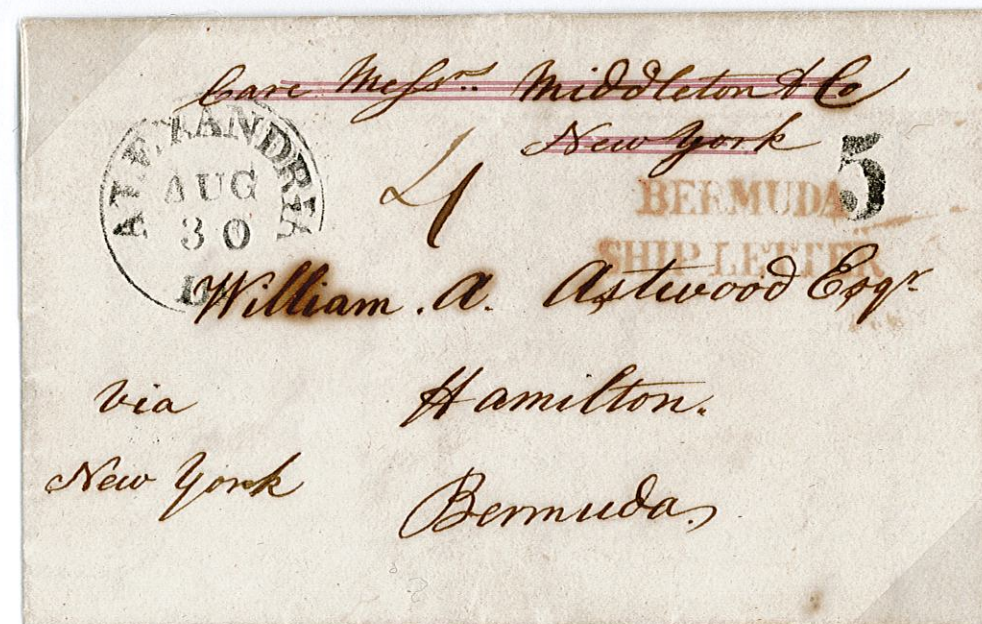 Care Messrs. Middleton & Co
New York
ALEXANDRIA
AUG
30
D.C.
4
5
BERMUDA
SHIP LETTER
William. A. Astwood Esqr.
Hamilton.
Bermuda
via
New York